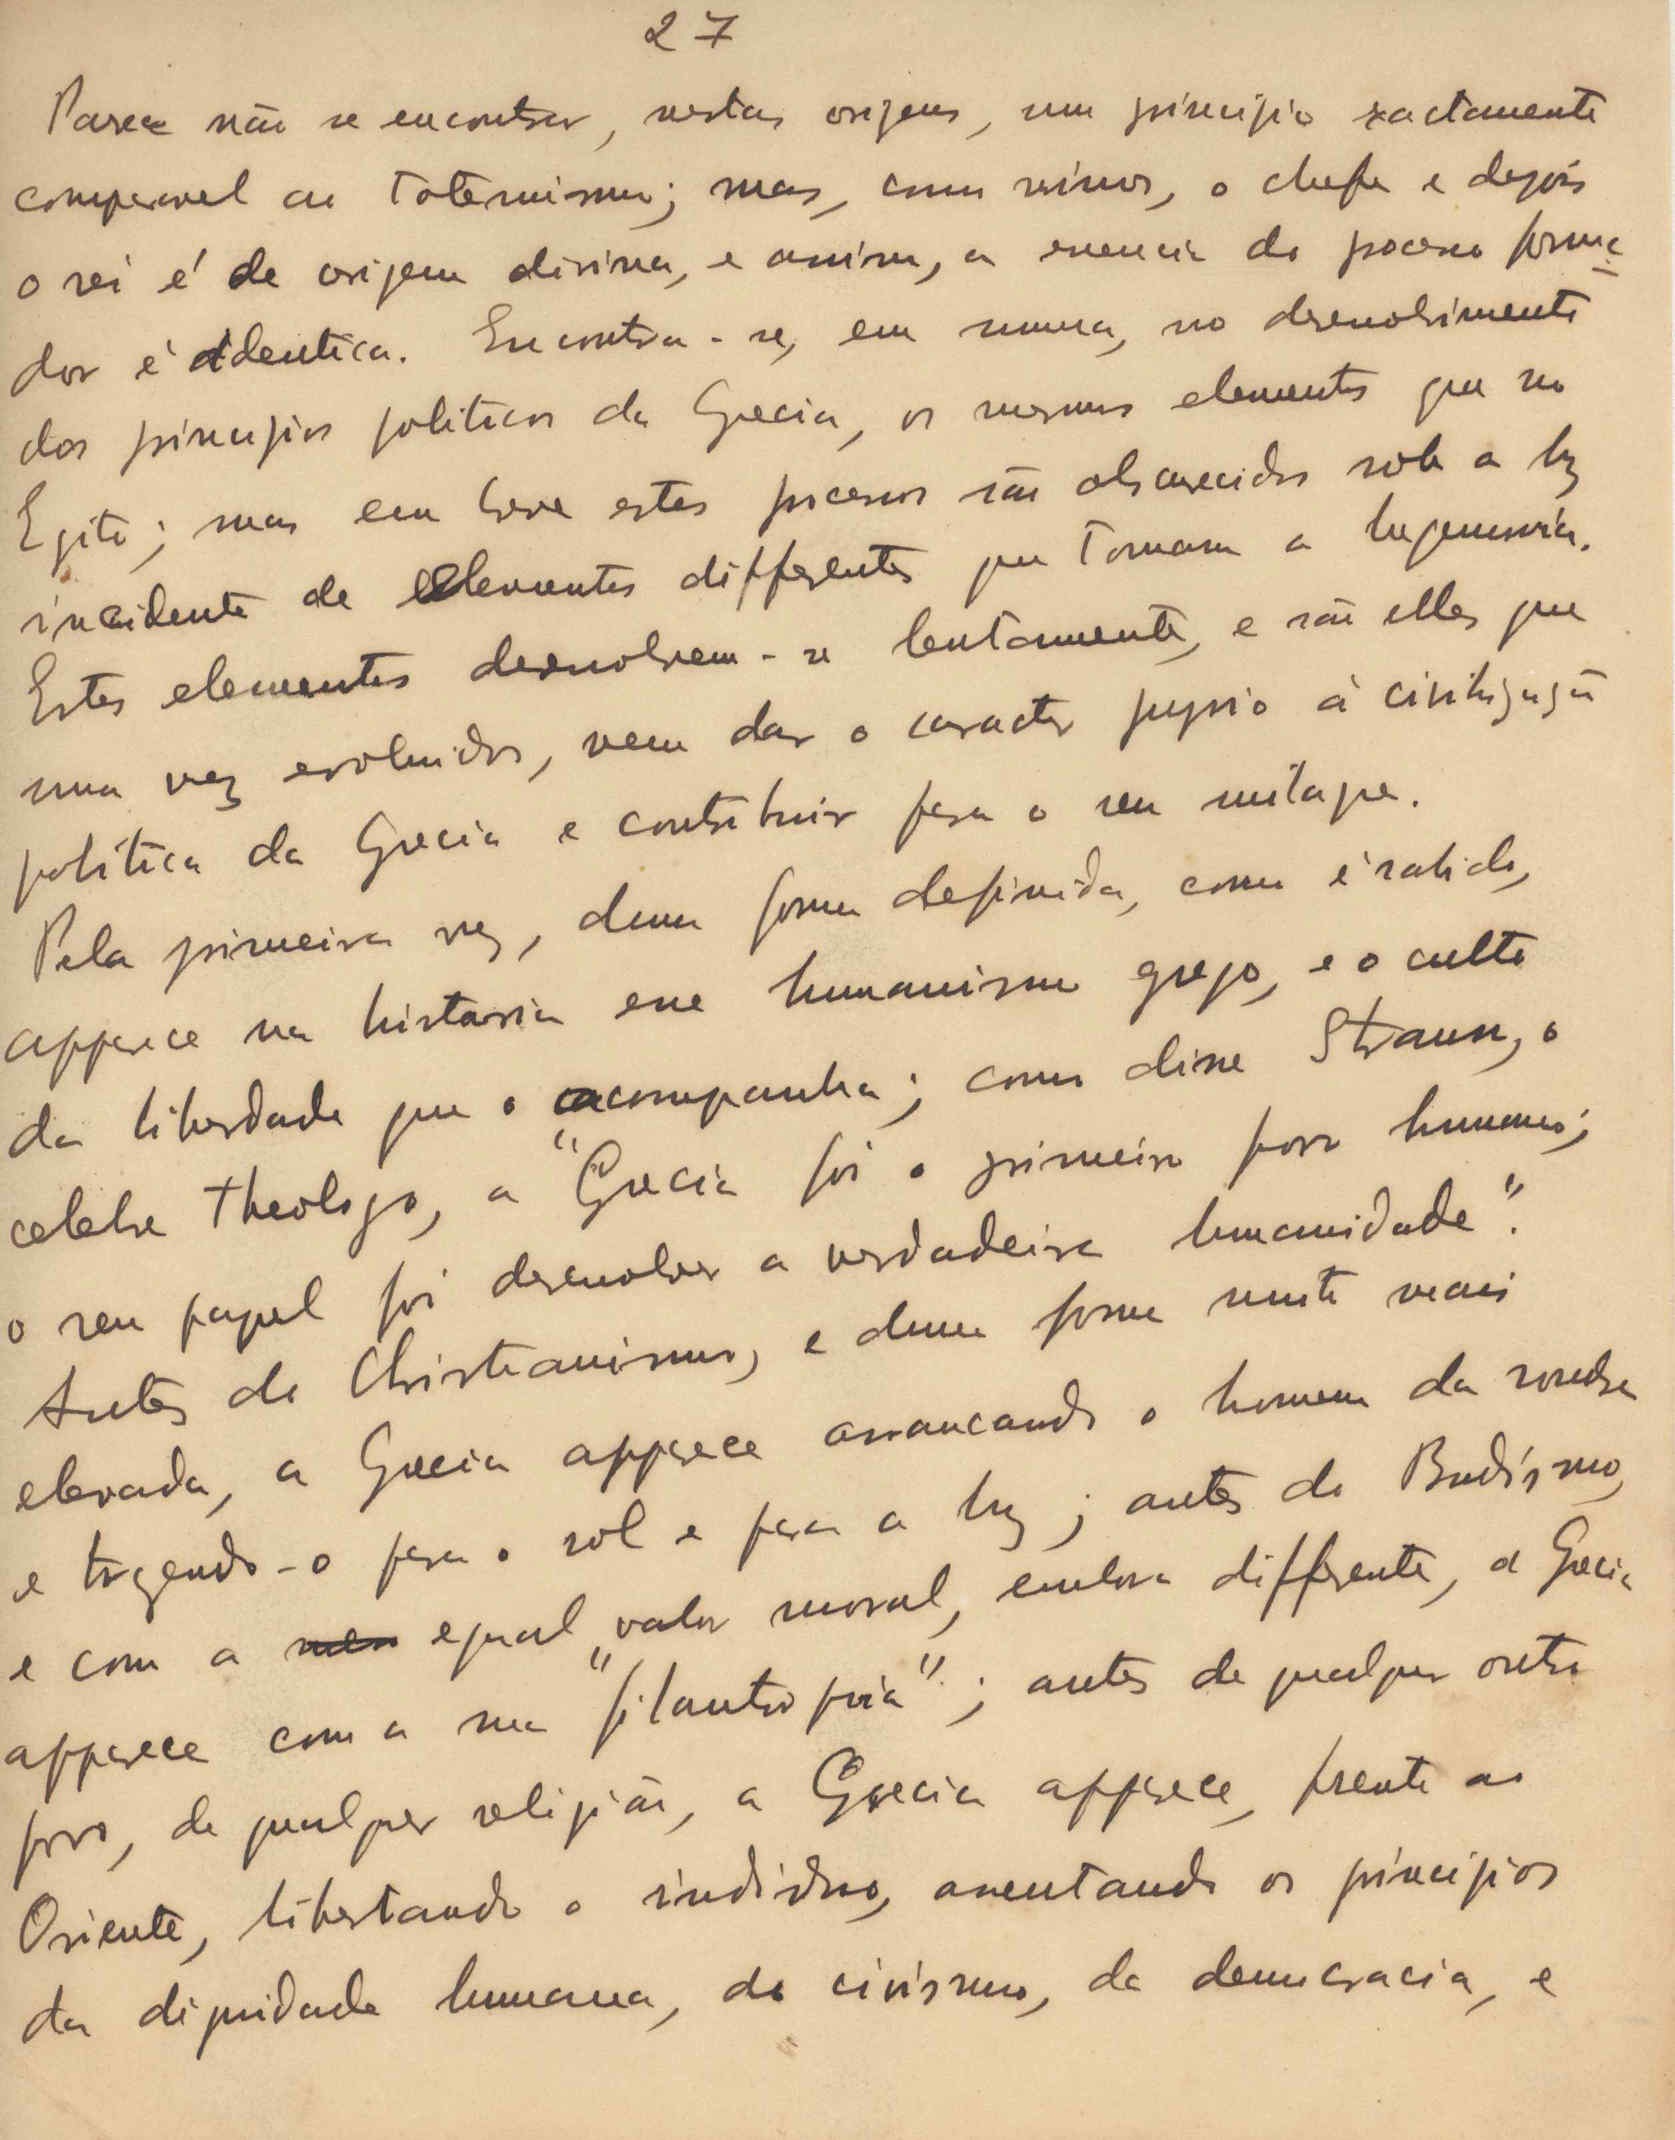 27
Parece não se encontrar, nestas origens, um principio exactamente
comparavel ao totemismo; mas, como vimos, o chefe e depois
o rei é de origem divina, e assim, a essencia do processo forma-
dor é identica. Encontra-se, em summa, no desenvolvimento
dos principios politicos da Grecia, os mesmos elementos que no
Egito; mas em breve estes processos são obscurecidos sob a luz
incidente de elementos differentes que tomam a hegemonia.
Estes elementos desenvolvem-se lentamente, e são elles que
uma vez evoluidos, vem dar o caracter proprio á civilização
politica da Grecia e contribuir para o seu milagre.
Pela primeira vez, duma forma definida, como é sabido,
apparece na historia esse humanismo grego, e o culto
da liberdade que o acompanha; como disse Strauss, o
celebre theologo, a "Grecia foi o primeiro povo humano;
o seu papel foi desenvolver a verdadeira humanidade".
Antes do Christianismo, e duma forma muito mais
elevada, a Grecia apparece arrancando o homem da sombra
e trazendo-o para o sol e para a luz; antes do Budismo,
e com a egual valor moral, embora differente, a Grecia
apparece com a sua "filantropia"; antes de qualquer outro
povo, de qualquer religião, a Grecia apparece, frente ao
Oriente, libertando o individuo, assentando os principios
da dignidade humana, do civismo, da democracia, e